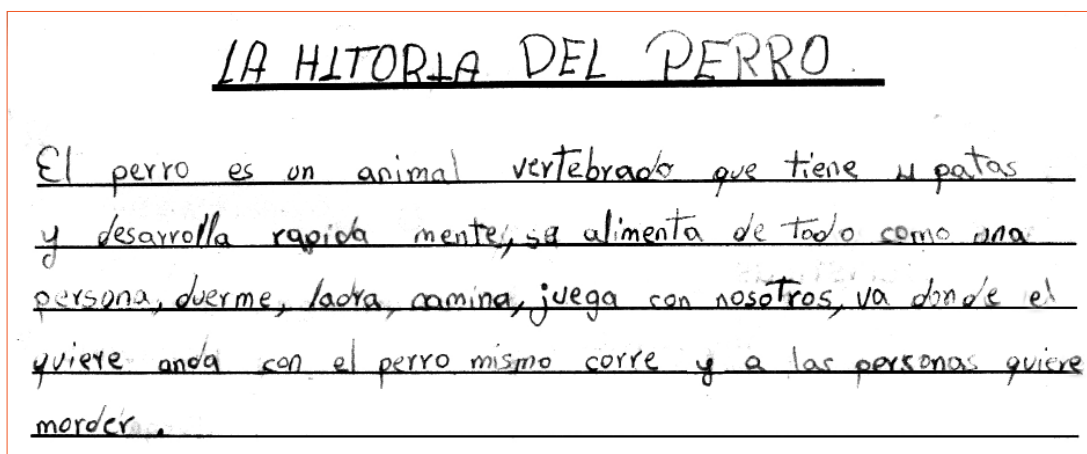 LA HITORIA DEL PERRO.
El perro es un animal vertebrado que tiene 4 patas
y desarrolla rapida mente, se alimenta de todo como una
persona, duerme, ladra, camina, juega con nosotros, va donde el
quiere anda con el perro mismo corre y a las personas quiere
morder.